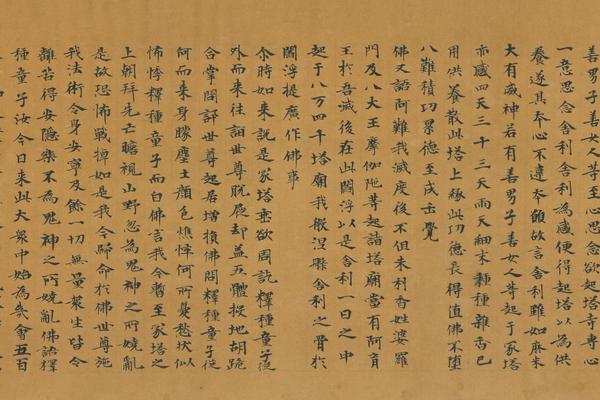 善男子善女人等至心思念欲起塔寺專心
一意思念舍利舍利為感便得起塔以為供
養遂其奉心不違本願故言舍利雖如麻米
大有威神若有善男子善女人等起于冢塔
亦感四天三十三天雨天細末種種雜香已
用供養散此塔上緣此功德長得值佛不墮
八難積功累德至成正覺
佛又語阿難我滅度後不但末利奇姓婆羅
門及八大王摩伽陁等起諸塔廟當有阿育
王於吾滅後在此閻浮以是舍利一日之中
起于八万四千塔廟我般涅槃舍利之骨於
閻浮提廣作佛事
尒時如来說是冢塔垂欲周訖釋種童子從
外而来往詣世尊脫屣却蓋五體投地胡跪
合掌問訊世尊起居增損佛問釋種童子從
何而来身朦塵土顏色憔悴何所憂愁狀似
怖悸釋種童子而白佛言我今暫至冢塔之
上朝拜先亡瞻視山野忽為鬼神之所嬈亂
是故恐怖戰掉如是我今歸命於佛世尊施
我法術令身安寧及餘一切無量衆生皆令
離苦得安隱樂不為鬼神之所嬈亂佛語釋
種童子汝今日来此大衆中始為衆會五百